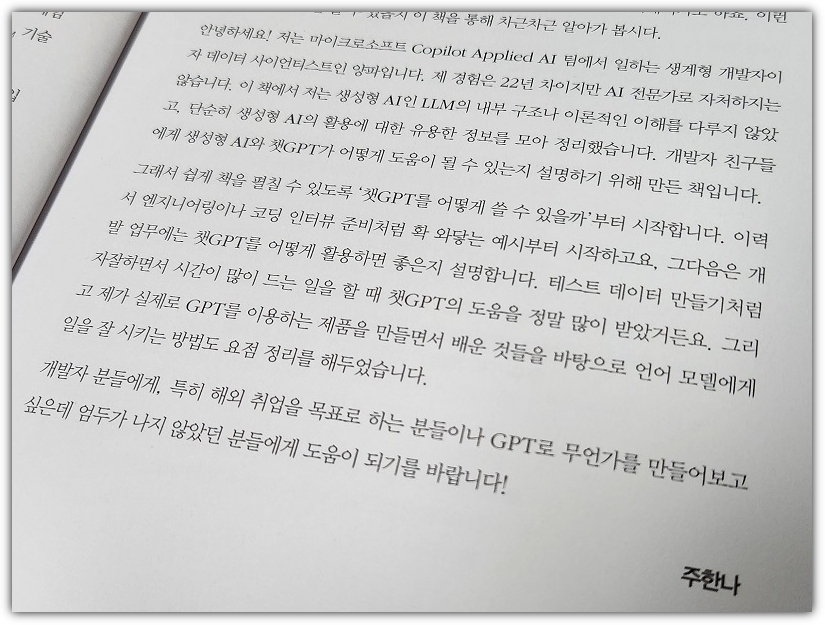 기술
수 있을지 이 책을 통해 차근차근 알아가 봅시다.
안녕하세요! 저는 마이크로소프트 Copilot Applied AI 팀에서 일하는 생계형 개발자이
자 데이터 사이언티스트인 양파입니다. 제 경험은 22년 차이지만 AI 전문가로 자처하지는
않습니다. 이 책에서 저는 생성형 AI인 LLM의 내부 구조나 이론적인 이해를 다루지 않았
고, 단순히 생성형 AI의 활용에 대한 유용한 정보를 모아 정리했습니다. 개발자 친구들
에게 생성형 AI와 챗GPT가 어떻게 도움이 될 수 있는지 설명하기 위해 만든 책입니다.
그래서 쉽게 책을 펼칠 수 있도록 ‘챗GPT를 어떻게 쓸 수 있을까’부터 시작합니다. 이력
서 엔지니어링이나 코딩 인터뷰 준비처럼 확 와닿는 예시부터 시작하고요, 그다음은 개
발 업무에는 챗GPT를 어떻게 활용하면 좋은지 설명합니다. 테스트 데이터 만들기처럼
자잘하면서 시간이 많이 드는 일을 할 때 챗GPT의 도움을 정말 많이 받았거든요. 그리
고 제가 실제로 GPT를 이용하는 제품을 만들면서 배운 것들을 바탕으로 언어 모델에게
일을 잘 시키는 방법도 요점 정리를 해두었습니다.
개발자 분들에게, 특히 해외 취업을 목표로 하는 분들이나 GPT로 무언가를 만들어보고
싶은데 엄두가 나지 않았던 분들에게 도움이 되기를 바랍니다!
주한나